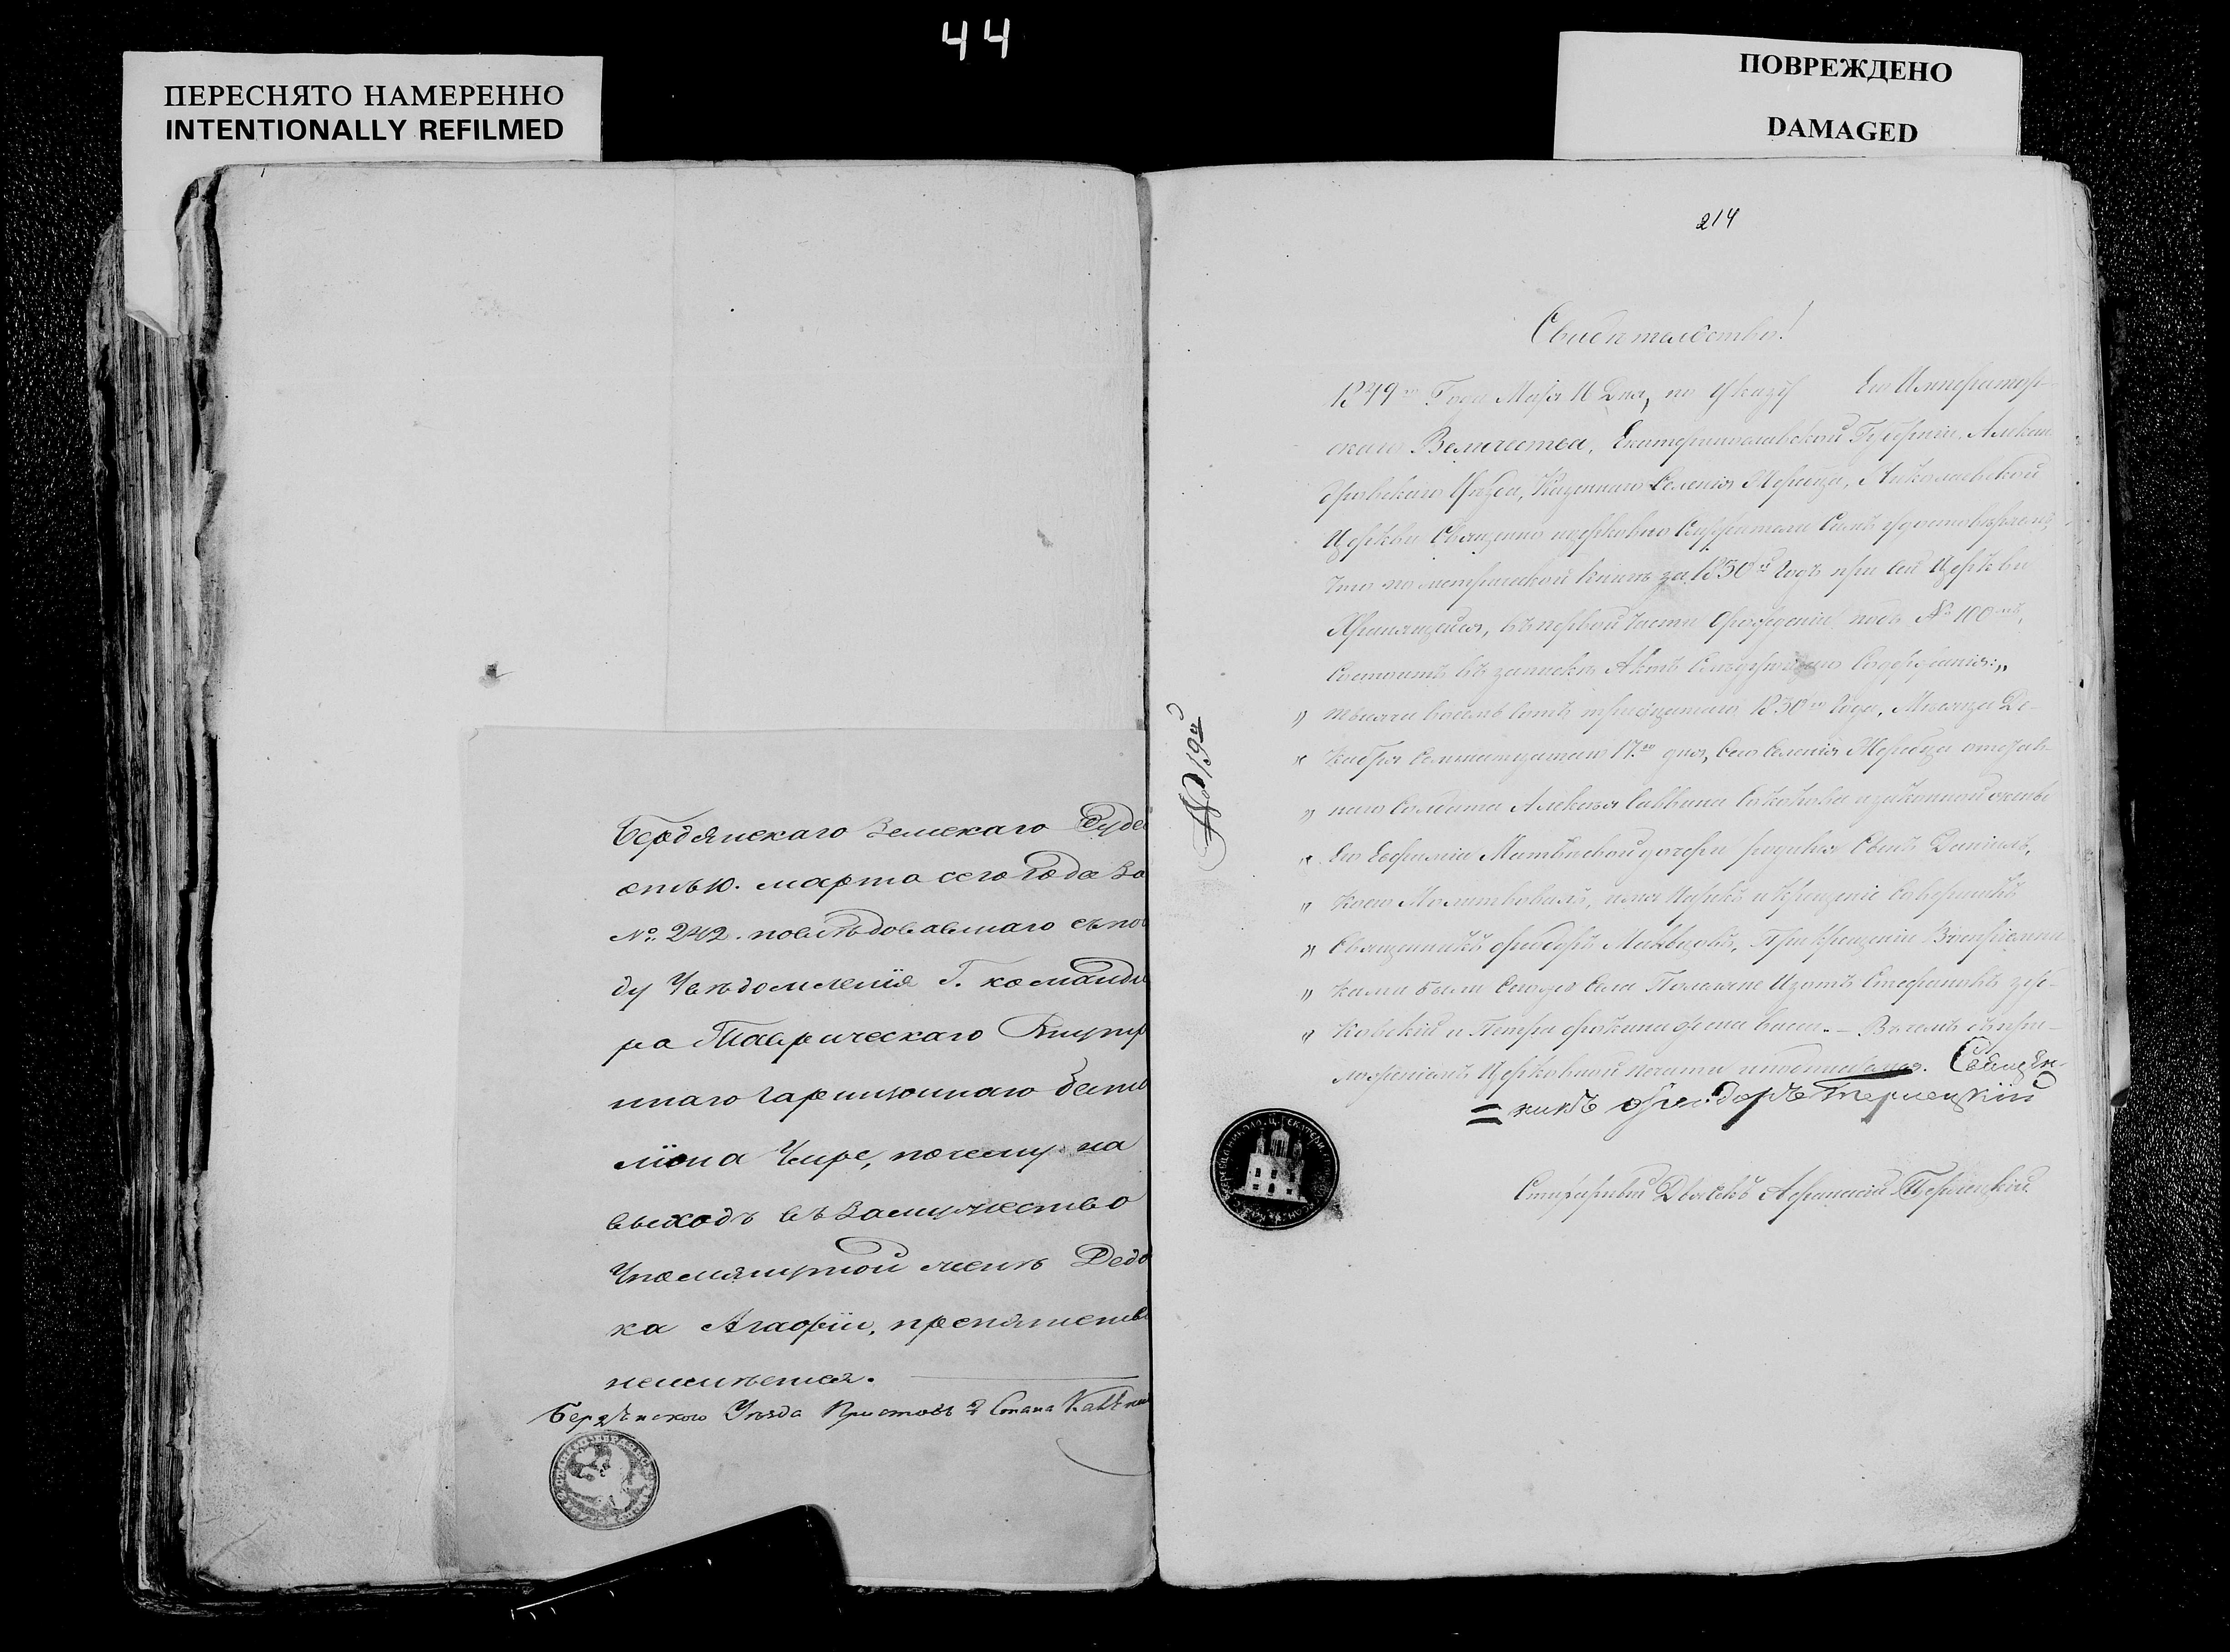 44
ПЕРЕСНЯТО НАМЕРЕННО
INTENTIONALLY REFILMED
ПОВРЕЖДЕНО
DAMAGED
Бердянскаго Земскаго Суда
марта сего года за
№. 242. последовавшаго
ду Уведомленія Г. команди
ра Таврическаго Внутр
нняго Гарнизоннаго бата
ліона Чире, почему на
выходъ въ замужество
Упомянутой женѣ Дедо
ка Агафіи, препятств
неимѣется.
Бердянского Уѣзда Приставъ 2 Стана
214
Свидѣтелство!
1849го Года Маія Дня, по Указу Его Император-
скаго Величества, Екатеринославской Губерніи, Алексан
дровскаго Уѣзда, Казеннаго Селенія Жеребца, Николаевской
Церкви Священно церковно Служители Симъ удостовѣряемъ,
Что по метрической книгѣ за 1830й Годъ при сей Церкви
Хранящейся, въ первой части о рожденіи подъ № 100мъ,
Состоитъ въ запискѣ Актъ Слѣдующаго Содержанія:„
„ тысяча восемь сотъ тридцатаго 1830го Года, Мѣсяца Де-
„ кабря Семнадцатаго 17.го дня, Сего Селенія Жеребца отстав-
„ наго Солдата Алексѣя Саввина и законной жены
„ Его Евфиміи Матвѣевой дочери родился Сынъ Даніилъ,
„ коего Молитвовалъ, имя Нарекъ и крещеніе Совершилъ
„ Священникъ Ѳеодоръ, При Крещеніи Воспріемни
„ ками были Сего Села Поселяне Изотъ Стефановъ
„ ковскій и Петра жена
ложеніемъ Церковной печати подписуемся. Священ-
= никъ Ѳеодоръ Терлецкій
Дьячекъ Афанасій
№ 19й